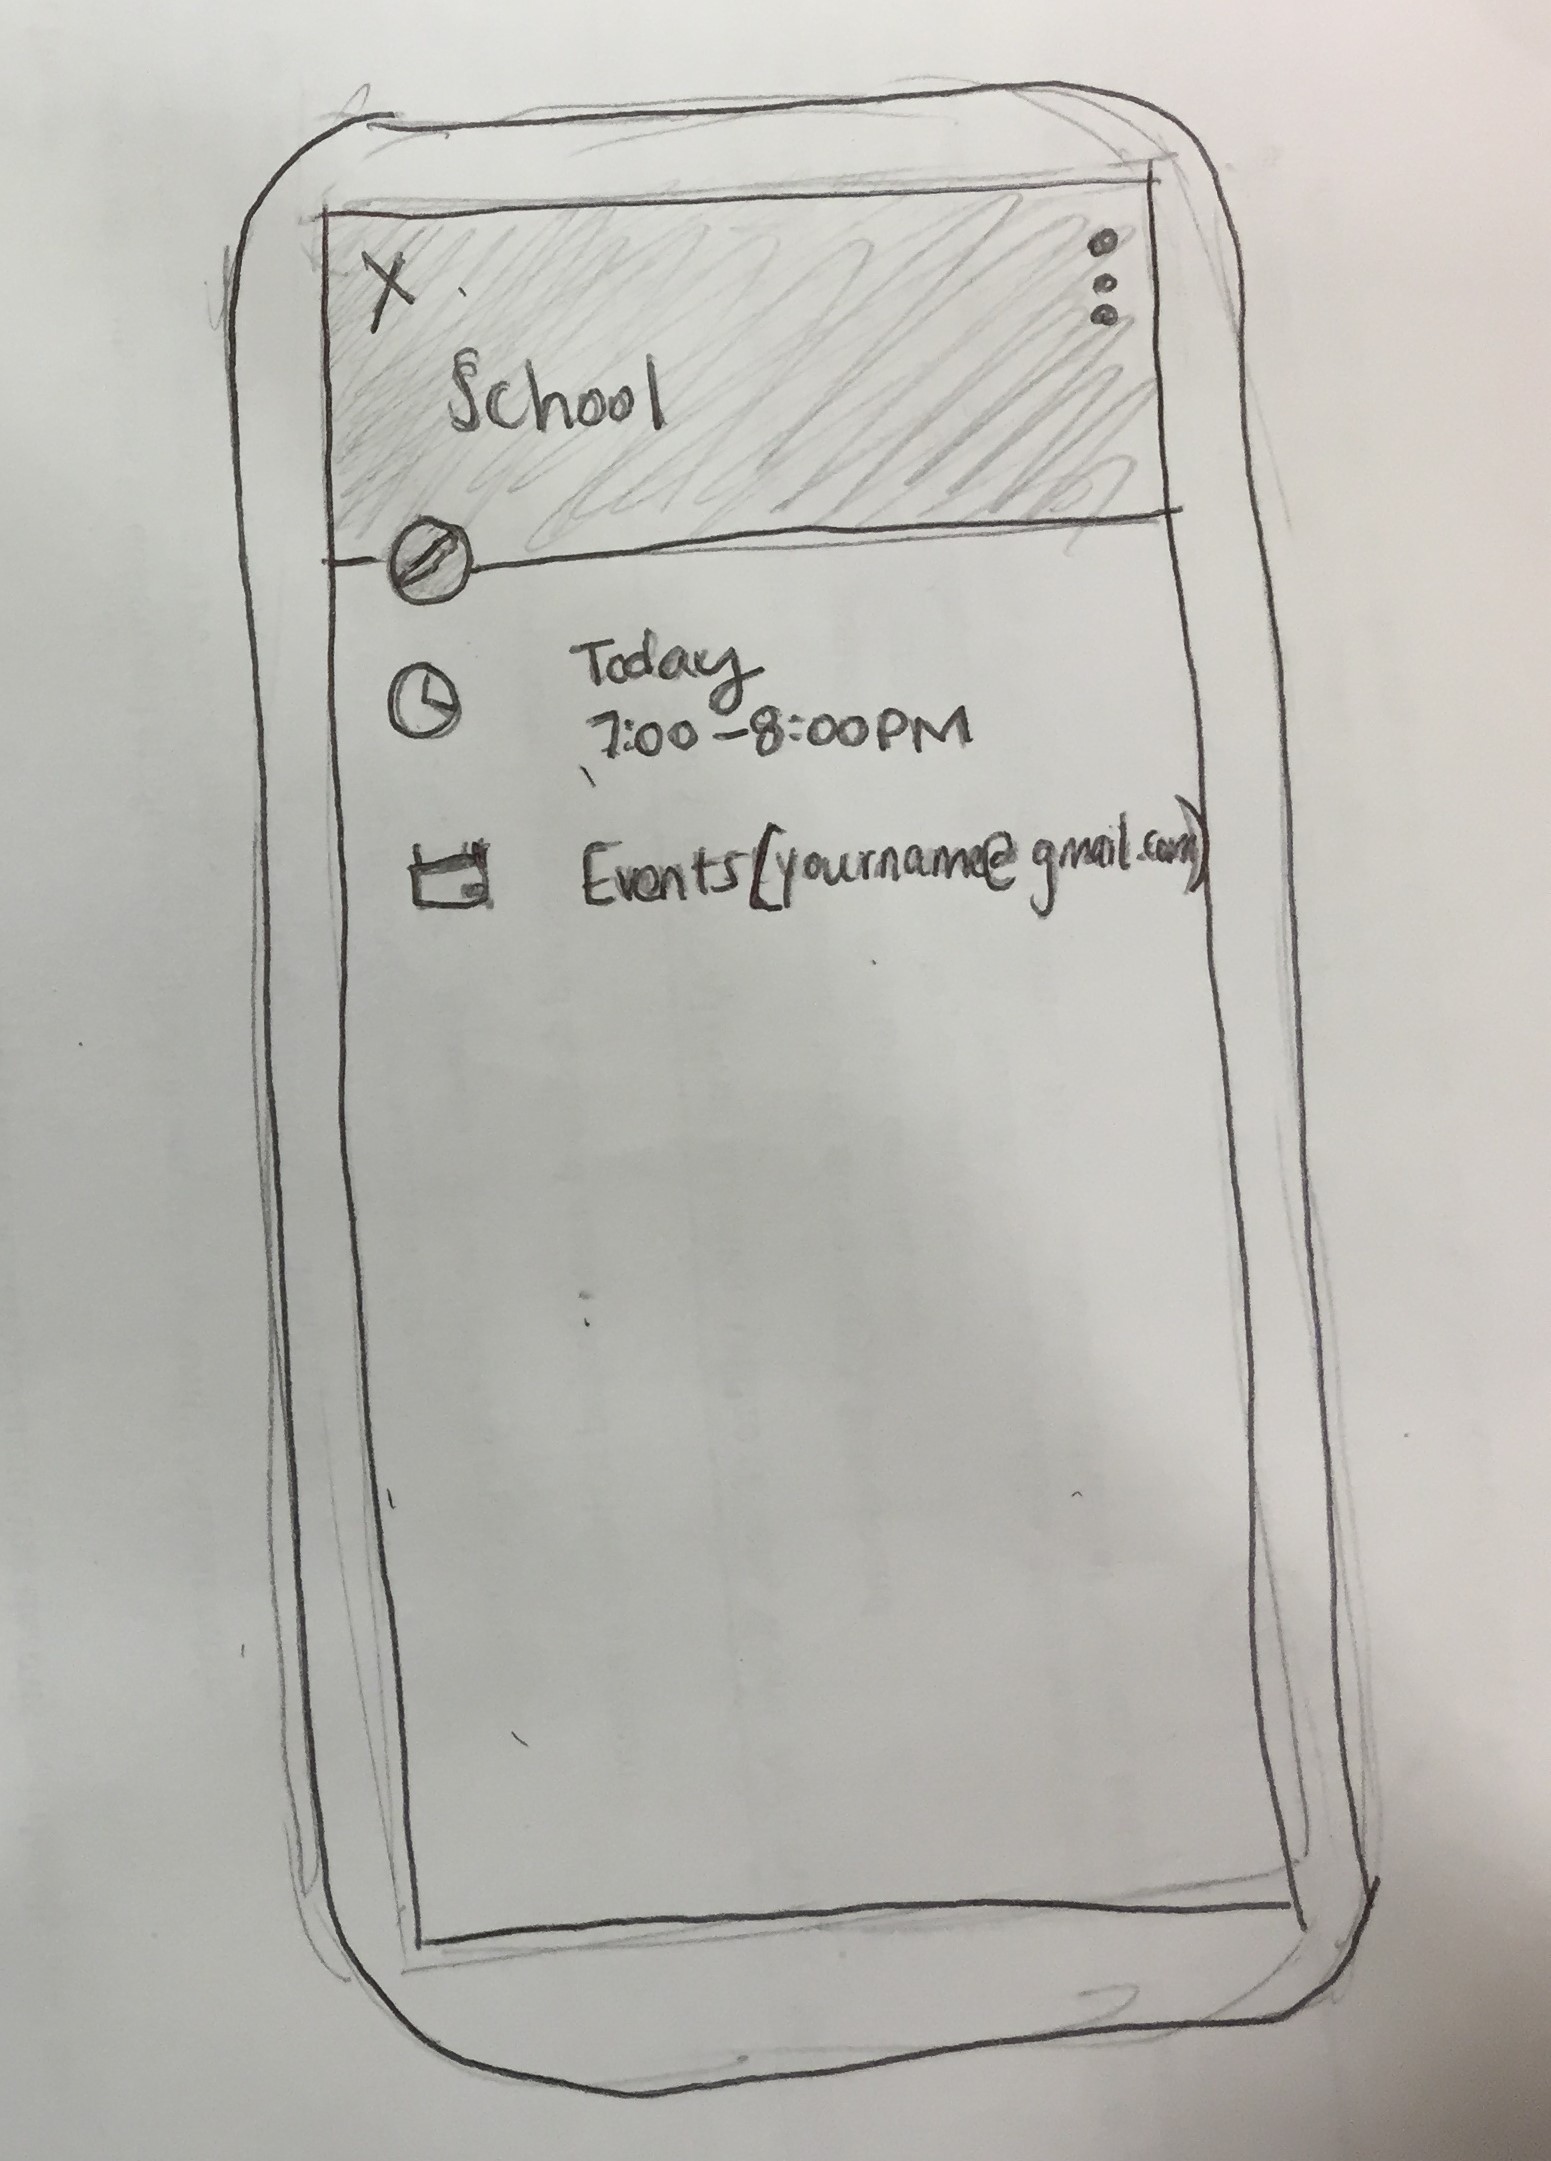 X
School
Today
7:00-8:00PM
Events (yourname@gmail.com)